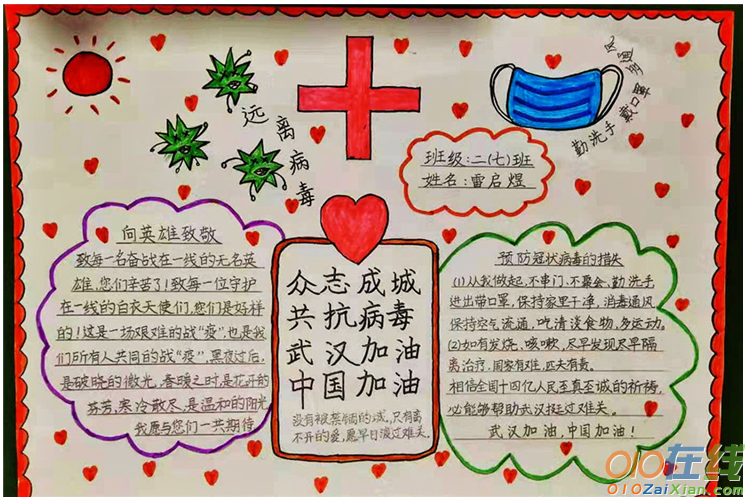 远离病毒
勤洗手 戴口罩
多通风
班级:二(七)班
姓名:雷启煜
向英雄致敬
致每一名奋战在一线的无名英
雄,您们辛苦了!致每一位守护
在一线的白衣天使们,您们是好样
的!这是一场艰难的战“疫”,也是我
们所有人共同的战“疫”,黑夜过后,
是破晓的微光,春暖之时,是花开的
芬芳,寒冷散尽,是温和的阳光
我愿与您们一共期待
众志成城
共抗病毒
武汉加油
中国加油
没有被禁锢的城,只有离
不开的爱,愿早日渡过难关。
预防冠状病毒的措失
(1)从我做起,不串门,不聚会,勤洗手,
进出带口罩,保持家里干净,消毒通风
保持空气流通,吃清淡食物,多运动。
(2)如有发烧、咳嗽,尽早发现尽早隔
离治疗,国家有难,匹夫有责。
相信全国十四亿人民至真至诚的祈祷,
必能够帮助武汉挺过难关。
武汉加油,中国加油!
010在线
010ZaiXian.com